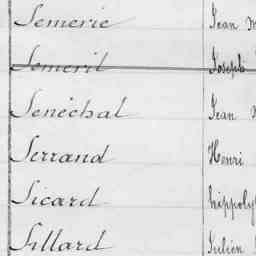 Semerie Jean
Semeril Joseph
Senéchal Jean
Serrand Henri
Sicard
Sillard Julien